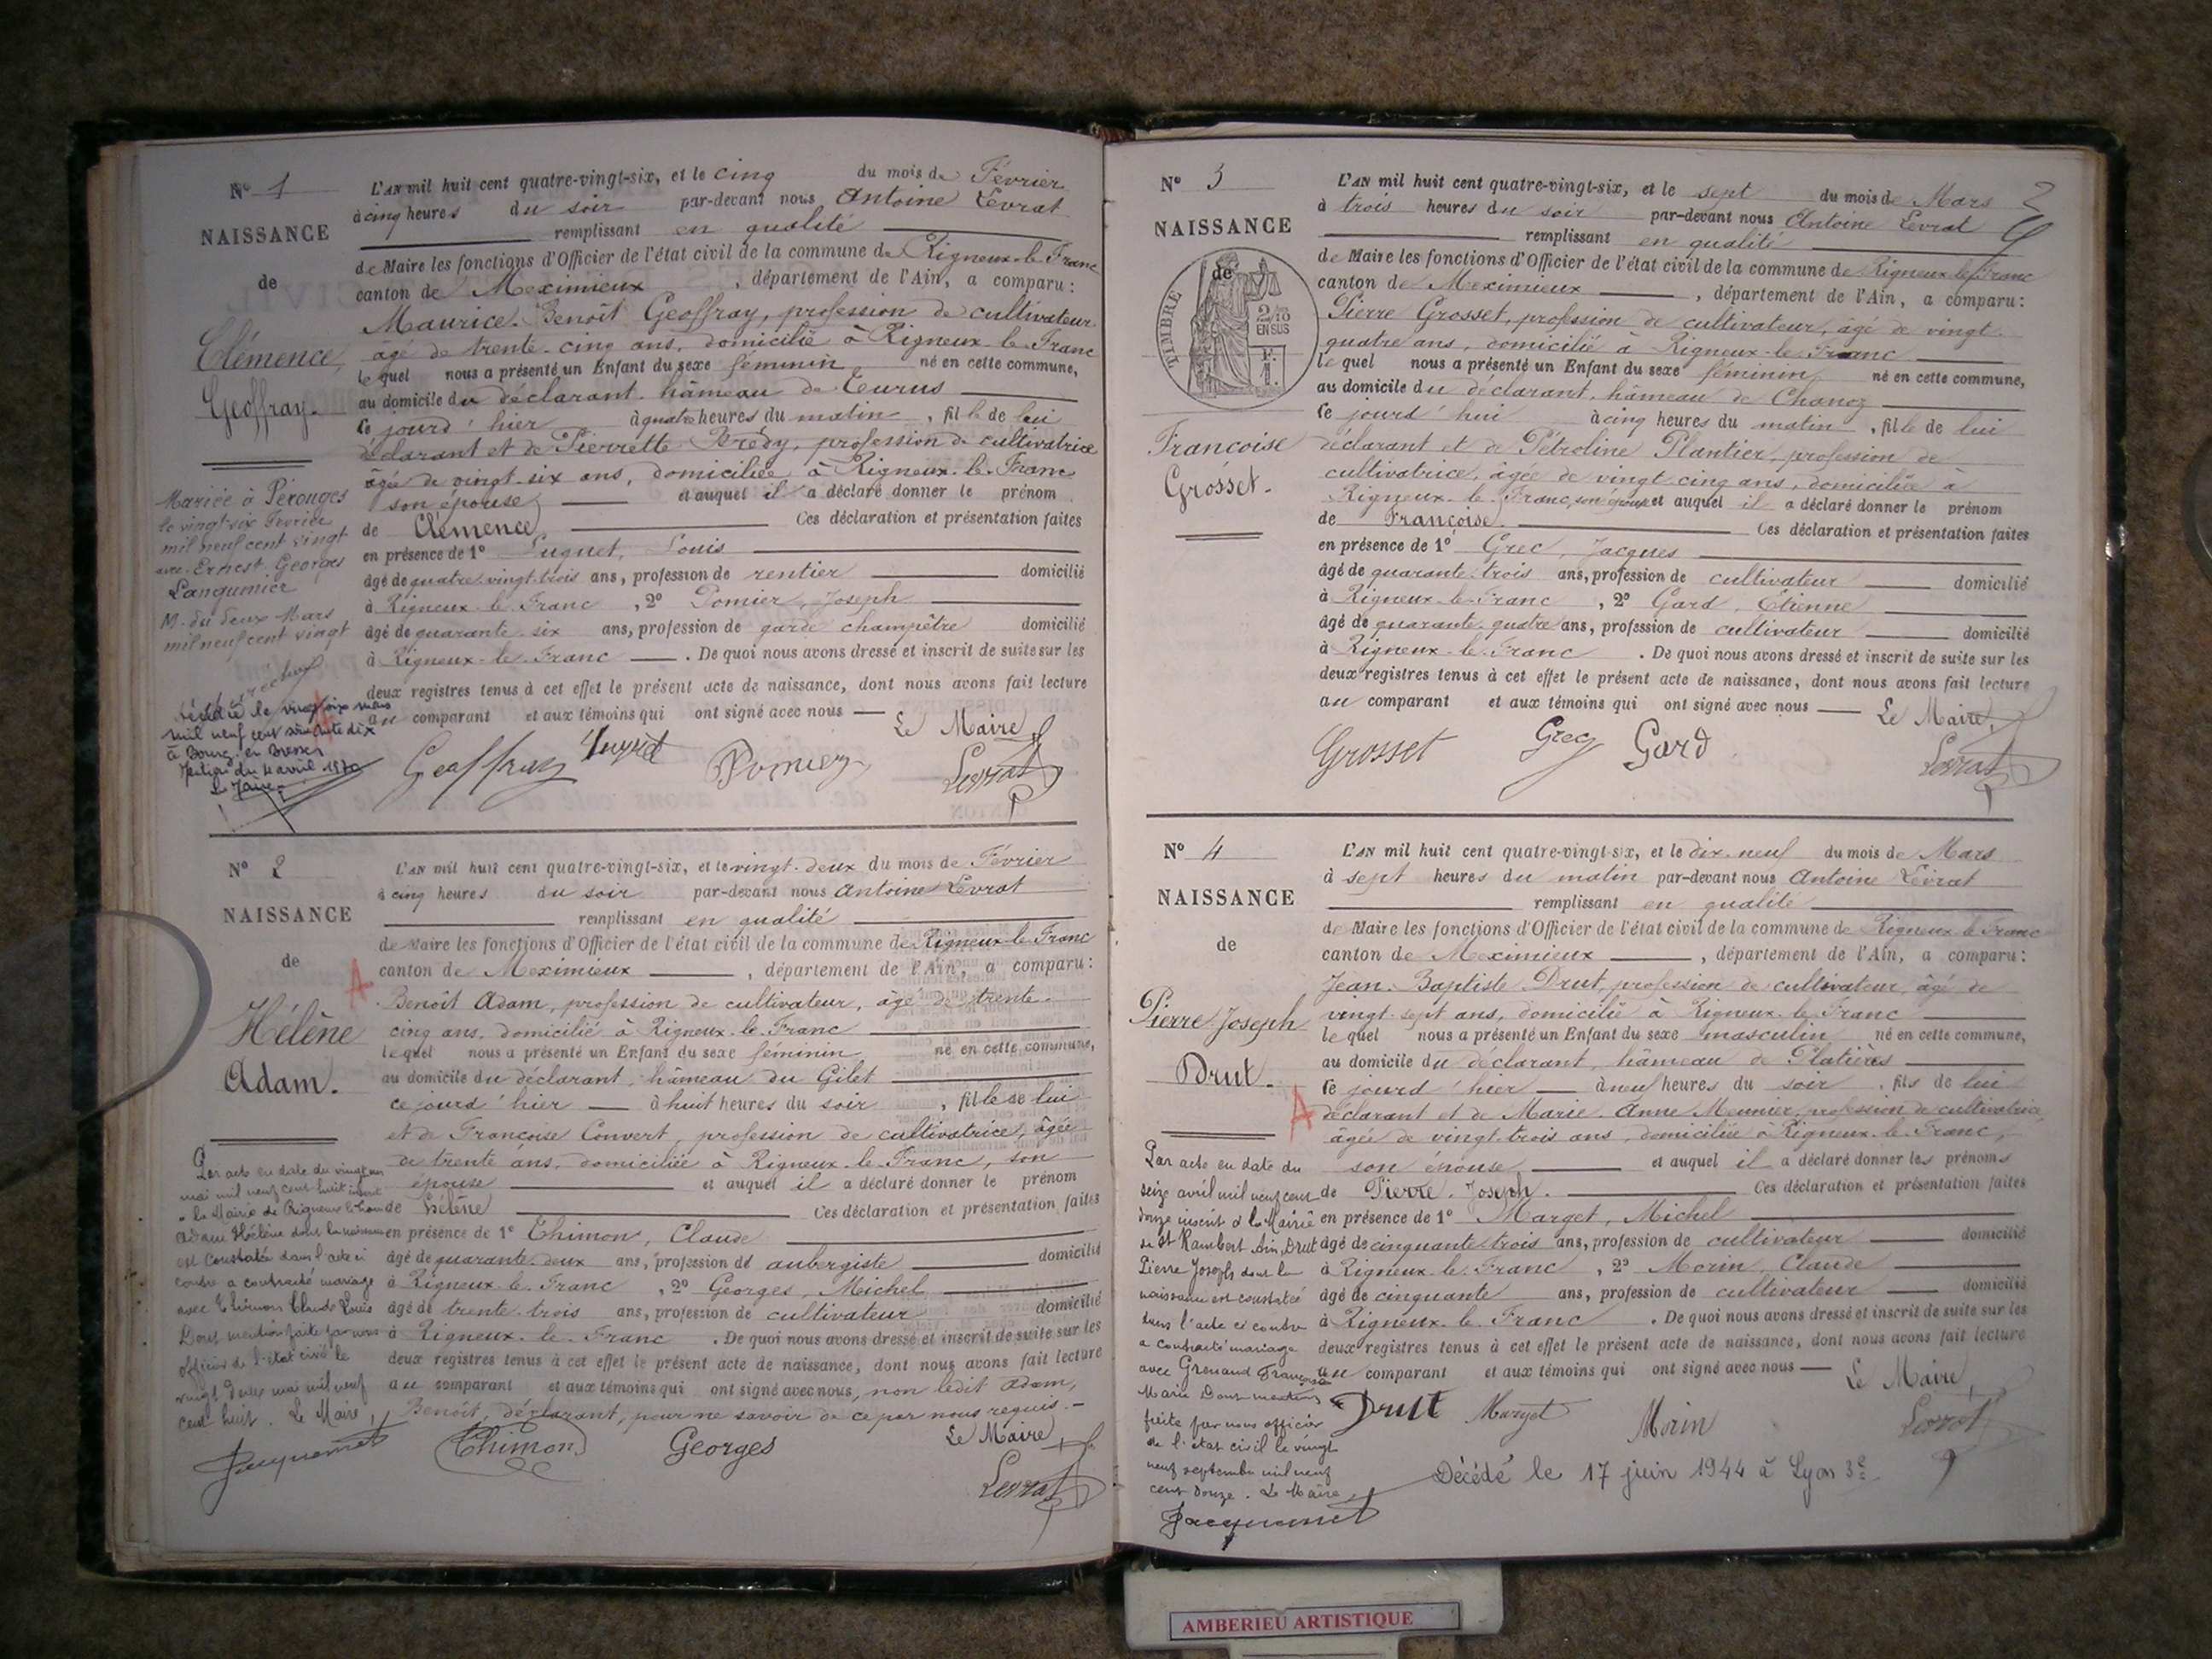 N° 1
NAISSANCE
de
Clémence
Geoffray.
Mariée à Pérouges
le vingt six Février
mil neuf cent vingt
avec Ernest Georges
M. du deux Mars
mil neuf cent vingt
mil neuf cent soixante dix
à Bourg en Bresse
Mention du 4 avril 1970
Le Maire
L'AN mil huit cent quatre-vingt-six, et le cinq du mois de Février
à cinq heures du soir par-devant nous Antoine Levrat
remplissant en qualité
de Maire les fonctions d'Officier de l'état civil de la commune de Rigneux-le-Franc
canton de Meximieux, département de l'Ain, a comparu:
Maurice-Benoît Geoffray, profession de cultivateur,
âgé de trente-cinq ans, domicilié à Rigneux-le-Franc
lequel nous a présenté un Enfant du sexe féminin né en cette commune,
au domicile du déclarant, hâmeau de Curus
ce jourd'hier à quatre heures du matin, fille de lui
déclarant et de Pierrette Brédy, profession de cultivatrice
âgée de vingt-six ans, domiciliée à Rigneux-le-Franc
son épouse, et auquel il a déclaré donner le prénom
de Clémence, Ces déclaration et présentation faites
en présence de 1° Luguet, Louis
âgé de quatre-vingt-trois ans, profession de rentier domicilié
à Rigneux-le-Franc, 2° Pomier, Joseph
âgé de quarante-six ans, profession de garde champêtre domicilié
à Rigneux-le-Franc. De quoi nous avons dressé et inscrit de suite sur les
deux registres tenus à cet effet le présent acte de naissance, dont nous avons fait lecture
au comparant et aux témoins qui ont signé avec nous — Le Maire,
Geoffray Pomier Levrat
N° 2
NAISSANCE
de
A
Hélène
Adam.
Par acte en date du vingt un
mai mil neuf cent huit inscrit
à la Mairie de Rigneux le franc
Adam Hélène dont la naissance
est constatée dans l'acte ci
contre a contracté mariage
avec Thimon Claude Louis
Dont mention faite par nous
officier de l'état civil le
vingt deux mai mil neuf
cent huit. Le Maire,
Jacquemet
L'AN mil huit cent quatre-vingt-six, et le vingt-deux du mois de Février
à cinq heures du soir par-devant nous Antoine Levrat
remplissant en qualité
de Maire les fonctions d'Officier de l'état civil de la commune de Rigneux-le-Franc
canton de Meximieux, département de l'Ain, a comparu:
Benoît Adam, profession de cultivateur, âgé de trente-
cinq ans, domicilié à Rigneux-le-Franc
lequel nous a présenté un Enfant du sexe féminin né en cette commune,
au domicile du déclarant, hâmeau du Gilet
ce jourd'hier — à huit heures du soir, fille de lui
et de Françoise Convert, profession de cultivatrice, âgée
de trente ans, domiciliée à Rigneux-le-Franc, son
épouse et auquel il a déclaré donner le prénom
de Hélène Ces déclaration et présentation faites
en présence de 1° Thimon, Claude
âgé de quarante-deux ans, profession de aubergiste domicilié
à Rigneux-le-Franc, 2° Georges, Michel
âgé de trente-trois ans, profession de cultivateur domicilié
à Rigneux-le-Franc. De quoi nous avons dressé et inscrit de suite sur les
deux registres tenus à cet effet le présent acte de naissance, dont nous avons fait lecture
au comparant et aux témoins qui ont signé avec nous, non ledit Adam,
Benoît, déclarant, pour ne savoir de ce par nous requis. —
Le Maire,
Thimon Georges Levrat
2
N° 3
NAISSANCE
de
TIMBRE
2/10
EN SUS
Françoise
Grosset.
L'AN mil huit cent quatre-vingt-six, et le sept du mois de Mars
à trois heures du soir par-devant nous Antoine Levrat
remplissant en qualité
de Maire les fonctions d'Officier de l'état civil de la commune de Rigneux-le-Franc
canton de Meximieux, département de l'Ain, a comparu:
Pierre Grosset, profession de cultivateur, âgé de vingt-
quatre ans, domicilié à Rigneux-le-Franc
lequel nous a présenté un Enfant du sexe féminin né en cette commune,
au domicile du déclarant, hâmeau de Chanoz
ce jourd'hui à cinq heures du matin, fille de lui
déclarant et de Pétroline Plantier, profession de
cultivatrice, âgée de vingt-cinq ans, domiciliée à
Rigneux-le-Franc, son épouse et auquel il a déclaré donner le prénom
de Françoise. Ces déclaration et présentation faites
en présence de 1° Grec, Jacques
âgé de quarante-trois ans, profession de cultivateur domicilié
à Rigneux-le-Franc, 2° Gard, Etienne
âgé de quarante-quatre ans, profession de cultivateur domicilié
à Rigneux-le-Franc. De quoi nous avons dressé et inscrit de suite sur les
deux registres tenus à cet effet le présent acte de naissance, dont nous avons fait lecture
au comparant et aux témoins qui ont signé avec nous — Le Maire,
Grosset Grec Gard Levrat
N° 4
NAISSANCE
de
Pierre-Joseph
Drut.
A
Par acte en date du
seize avril mil neuf cent
douze inscrit à la Mairie
de St Rambert Ain, Drut
Pierre Joseph dont la
naissance est constatée
dans l'acte ci contre
a contracté mariage
avec Grenaud Françoise
Marie Dont mention
faite par nous officier
de l'état civil le vingt
neuf septembre mil neuf
cent douze. Le Maire,
Jacquemet
L'AN mil huit cent quatre-vingt-six, et le dix-neuf du mois de Mars
à sept heures du matin par-devant nous Antoine Levrat
remplissant en qualité
de Maire les fonctions d'Officier de l'état civil de la commune de Rigneux-le-Franc
canton de Meximieux, département de l'Ain, a comparu:
Jean-Baptiste Drut, profession de cultivateur, âgé de
vingt-sept ans, domicilié à Rigneux-le-Franc
lequel nous a présenté un Enfant du sexe masculin né en cette commune,
au domicile du déclarant, hâmeau de Platières
ce jourd'hier — à neuf heures du soir, fils de lui
déclarant et de Marie-Anne Meunier, profession de cultivatrice
âgée de vingt-trois ans, domiciliée à Rigneux-le-Franc,
son épouse, et auquel il a déclaré donner les prénoms
de Pierre-Joseph. Ces déclaration et présentation faites
en présence de 1° Marget, Michel
âgé de cinquante-trois ans, profession de cultivateur domicilié
à Rigneux-le-Franc, 2° Morin, Claude
âgé de cinquante ans, profession de cultivateur domicilié
à Rigneux-le-Franc. De quoi nous avons dressé et inscrit de suite sur les
deux registres tenus à cet effet le présent acte de naissance, dont nous avons fait lecture
au comparant et aux témoins qui ont signé avec nous — Le Maire,
Drut Marget Morin Levrat
Décédé le 17 juin 1944 à Lyon 3e
AMBERIEU ARTISTIQUE